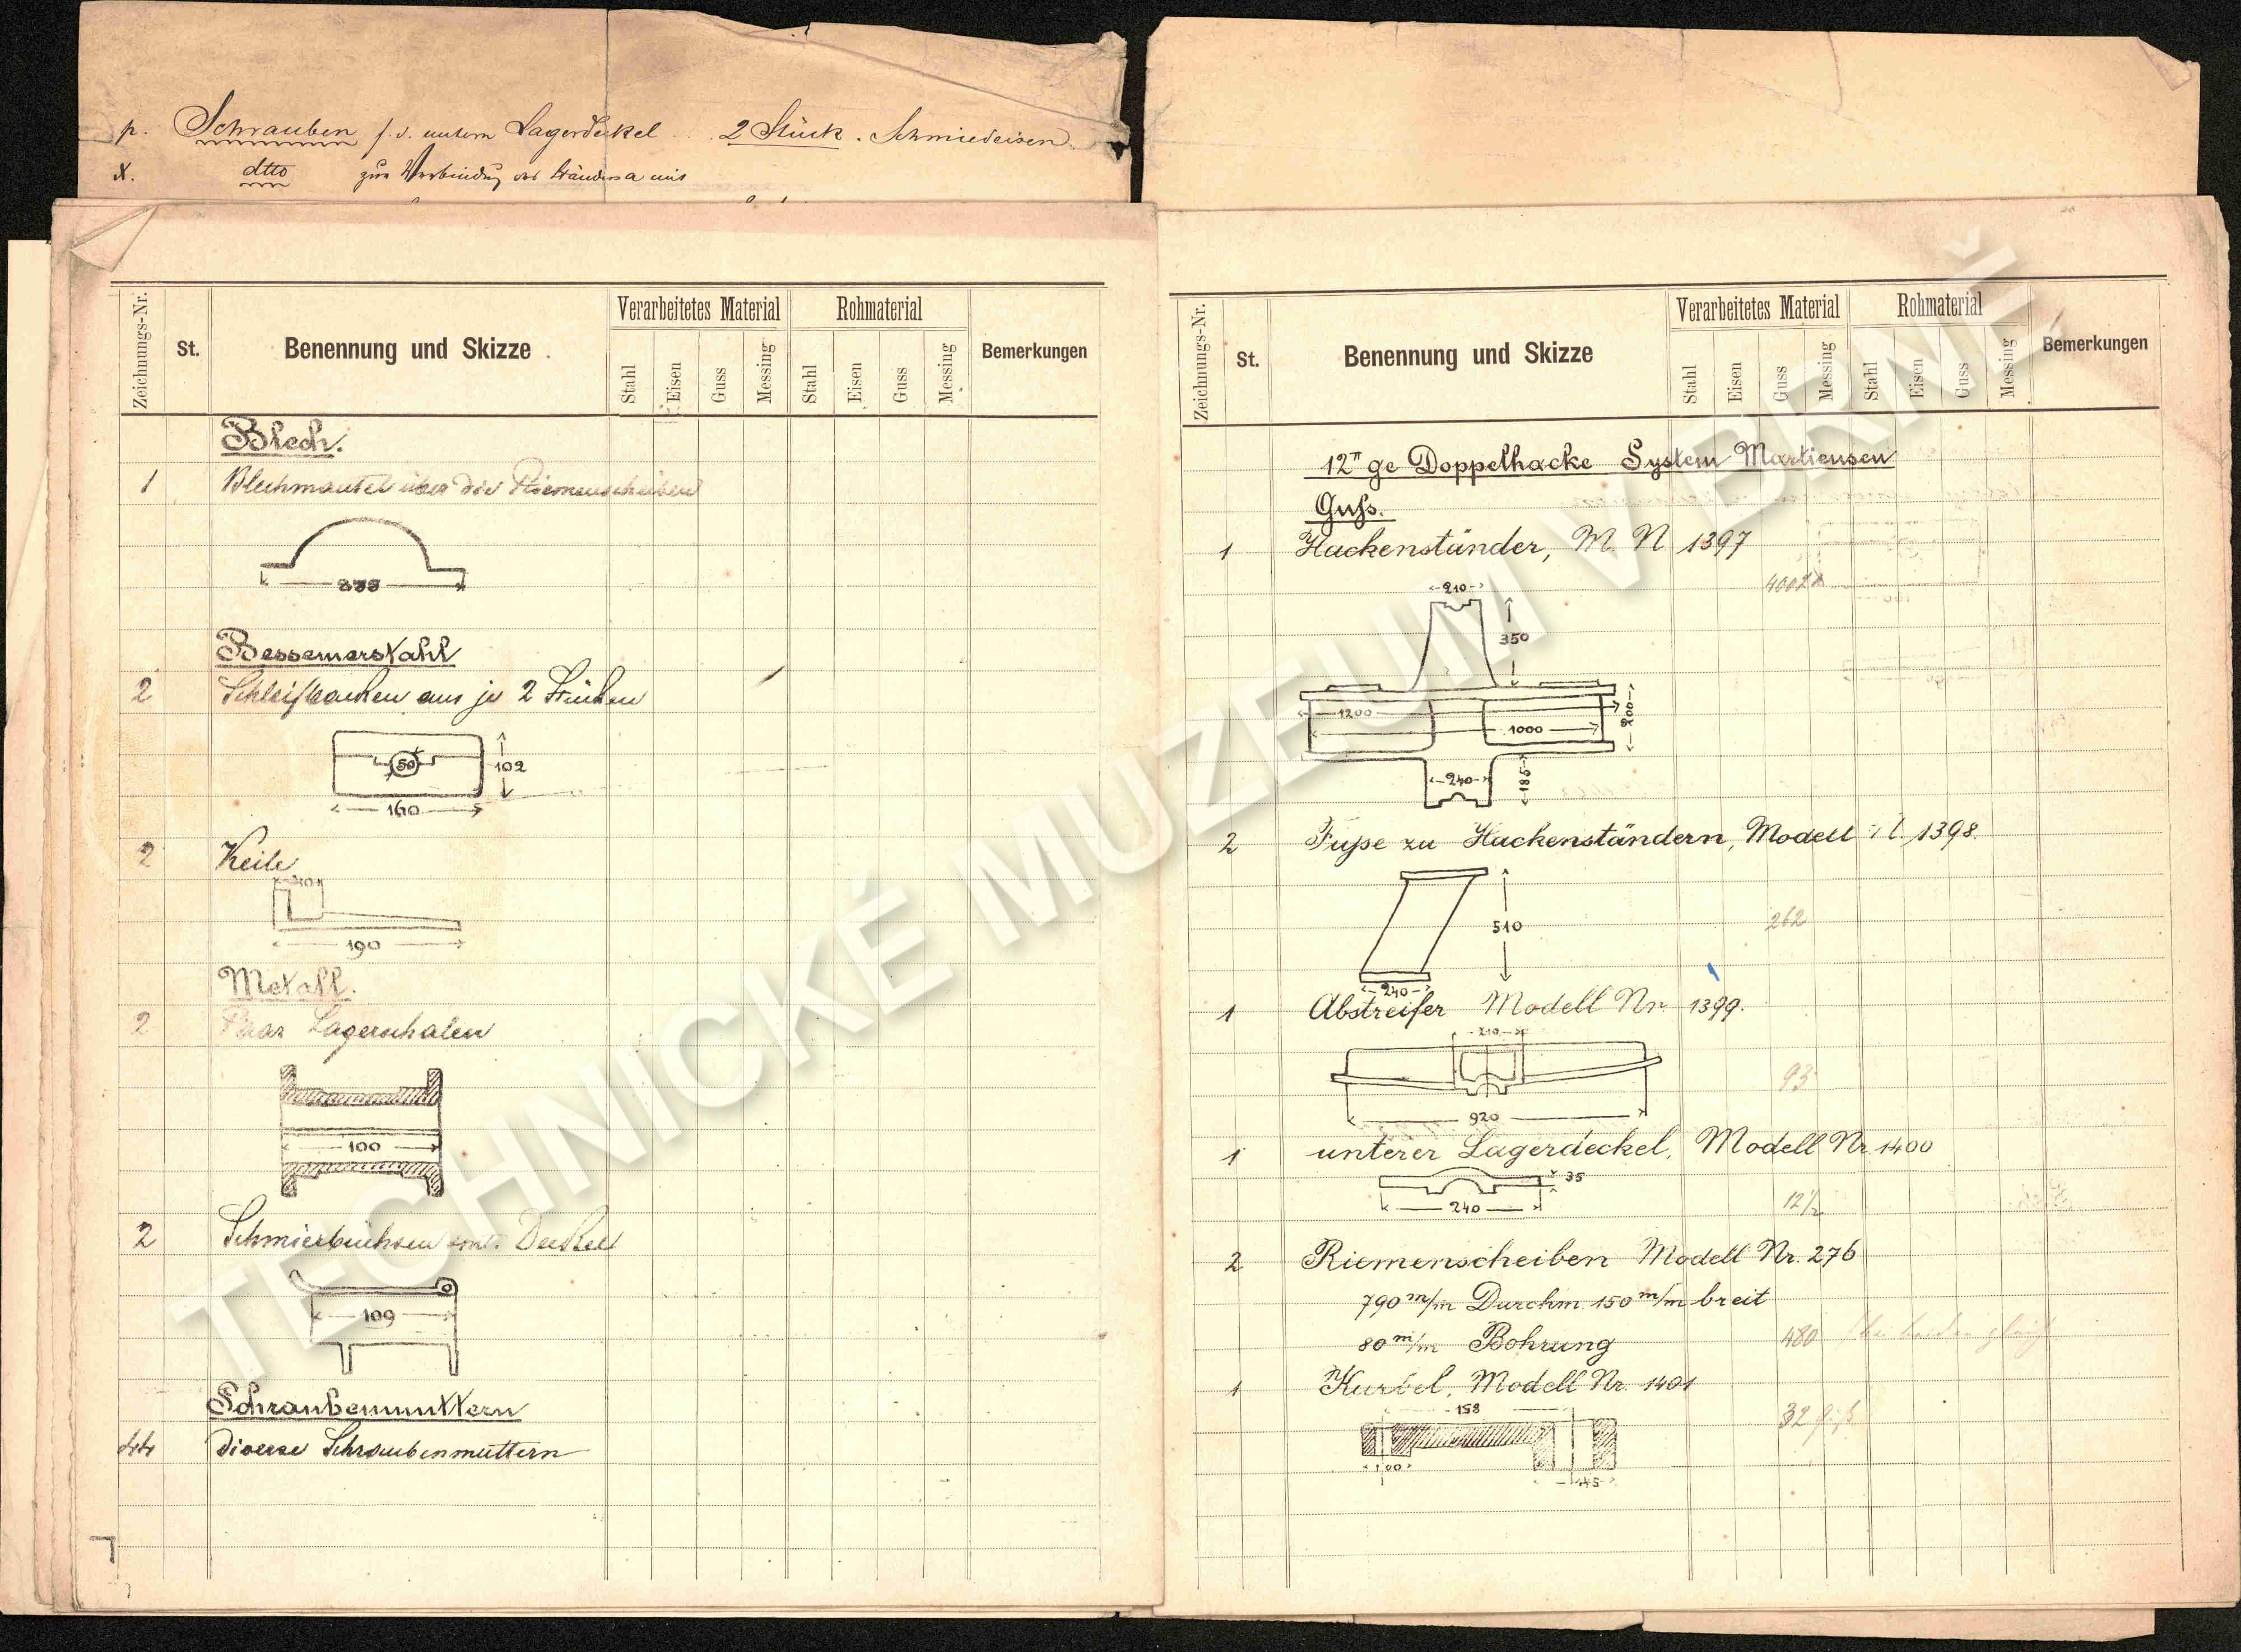 p. Schrauben f. d. untern Lagerdeckel .. 2 Stück. Schmiedeisen
x. dtto zur Verbindung des Ständers a mit
Zeichnungs-Nr. St. Benennung und Skizze Verarbeitetes Material Rohmaterial Bemerkungen
Stahl Eisen Guss Messing Stahl Eisen Guss Messing
Blech.
1 Blechmantel über die Riemenscheiben
Bessemerstahl
2 Schleifbacken aus je 2 Stücken
50
102
160
2 Keile
190
Metall.
2 Paar Lagerschalen
100
2 Schmierbüchsen Deckel
109
Schraubenmuttern
44 diverse Schraubenmuttern
Zeichnungs-Nr. St. Benennung und Skizze Verarbeitetes Material Rohmaterial Bemerkungen
Stahl Eisen Guss Messing Stahl Eisen Guss Messing
12" ge Doppelhacke System Martiensen
Guss.
1 Hackenständer, M. N 1397
210
350
1200
1000
200
240
185
2 Füsse zu Hackenständern, Modell 1398
510
262
240
1 Abstreifer Modell Nr. 1399.
210
93
920
1 unterer Lagerdeckel, Modell Nr 1400
35
240
12½
2 Riemenscheiben Modell Nr. 276
790 m/m Durchm 150 m/m breit
80 m/m Bohrung 480
1 Kurbel, Modell Nr. 1401
158
32
100
145
TECHNICKÉ MUZEUM V BRNĚ